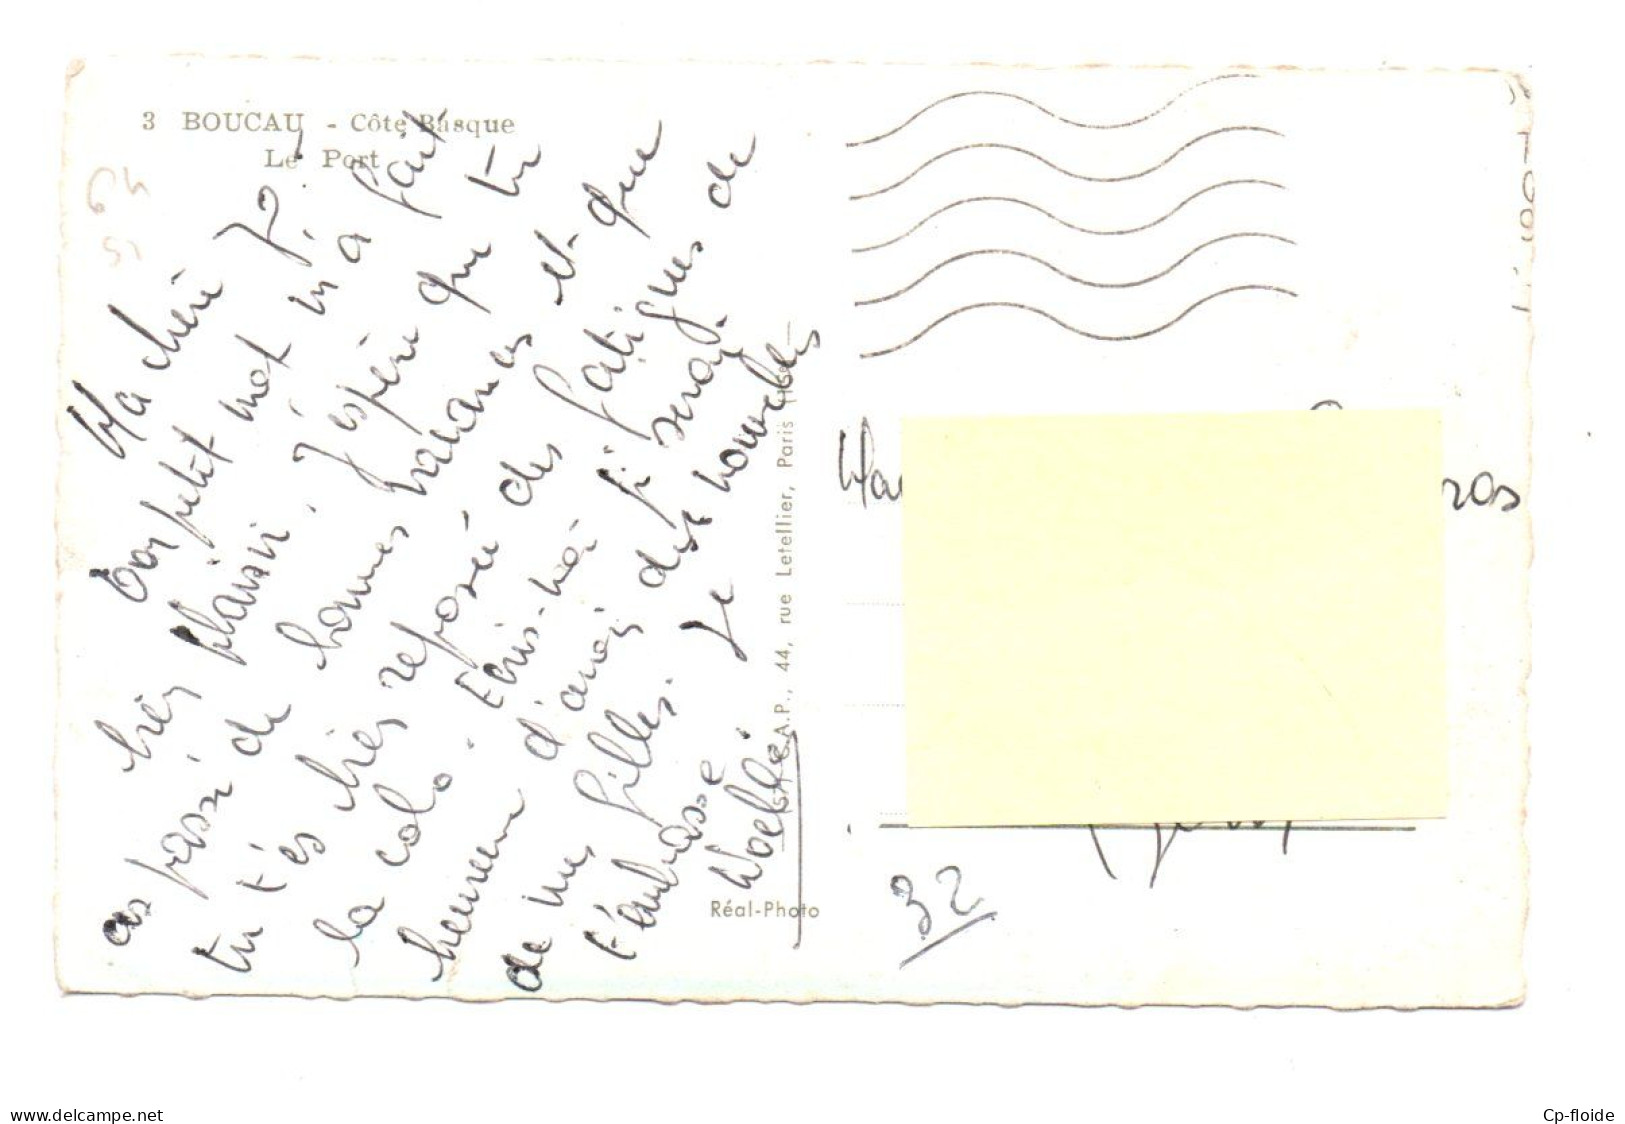 3 BOUCAU - Côte Basque
Le Port
64
Ma chère Jo.
Ton petit mot m'a fait
bien plaisir. J'espère que tu
as passé de bonnes vacances et que
tu t'es bien reposée des fatigues de
la colo. Ecris-moi si je serai
heureuse d'avoir des nouvelles
de mes filles. Je
t'embrasse
Noëlle.
S.A.P., 44, rue Letellier, Paris
Réal-Photo
ros
32
www.delcampe.net
Cp-floide